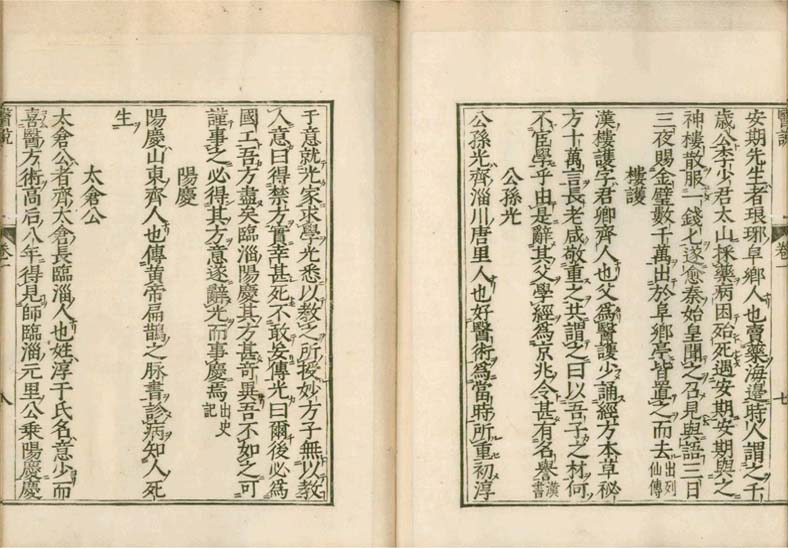 醫說 卷一 七
安期先生者琅琊阜鄉人也賣藥海邊時人謂之千
歲公李少君太山採藥病困殆死遇安期安期與之
神樓散服一錢匕遂愈秦始皇聞之召見與語三日
三夜賜金璧數千萬出於阜鄉亭皆置之而去出列仙傳
樓護
漢樓護字君卿齊人也父爲醫護少誦經方本草秘
方十萬言長老咸敬重之共謂之曰以吾子之材何
不宦學乎由是辭其父學經爲京兆令甚有名譽漢書
公孫光
公孫光齊淄川唐里人也好醫術爲當時所重初淳
于意就光家求學光悉以教之所授妙方子無以教
人意曰得禁方實幸甚死不敢妄傳光曰爾後必爲
國工吾方盡矣臨淄陽慶其方甚奇異吾不如之可
謹事之必得其方意遂辭光而事慶焉出史記
陽慶
陽慶山東齊人也傳黄帝扁鵲之脉書診病知人死
生
太倉公
太倉公者齊太倉長臨淄人也姓淳于氏名意少而
喜醫方術高后八年得見師臨淄元里公乘陽慶慶
醫說 卷一 八